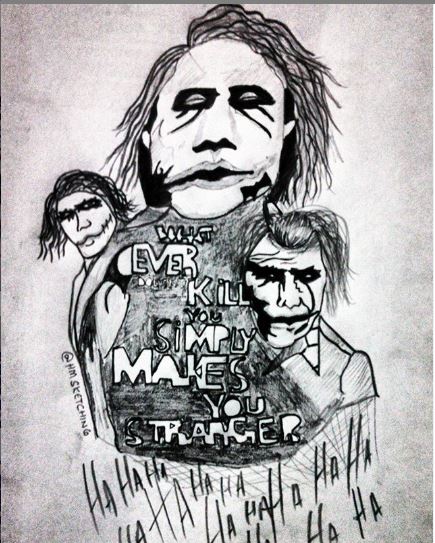 WHAT
EVER
DOESN'T
KILL
YOU
SIMPLY
MAKES
YOU
STRANGER
@HM.SKETCHING
HA HA HA HA HA HA HA HA HA
HA HA HA HA HA
HA HA HA